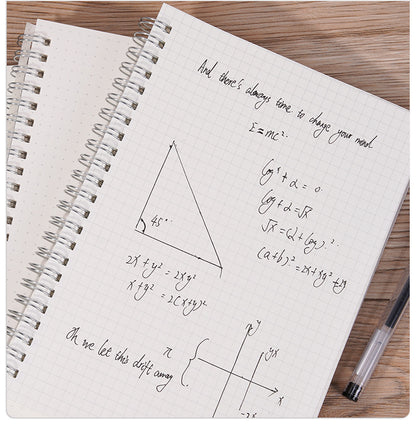 And there's always time to change your mind
E=mc².
log⁵ + α = 0
log + α = √x
√x = (α + log)².
(a+b)² = 2x + xy² + 2y
45°
2x + y² = 2xy²
x + y² = 2(x+y)²
Oh we let this drift away
π
y
yx
x
-2x